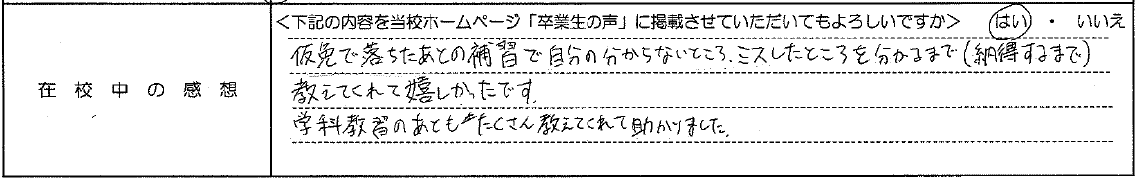 <下記の内容を当校ホームページ「卒業生の声」に掲載させていただいてもよろしいですか> はい ・ いいえ
在校中の感想
仮免で落ちたあとの補習で自分の分からないところ、ミスしたところを分かるまで(納得するまで)
教えてくれて嬉しかったです。
学科教習のあともたくさん教えてくれて助かりました。